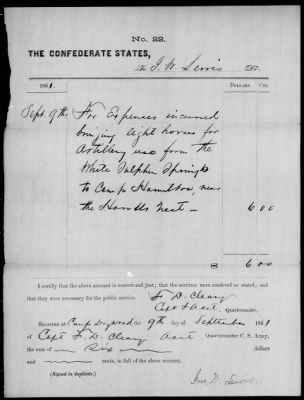 No. 22.
THE CONFEDERATE STATES,
To J. W. Lewis Dr.
1861. Dollars. Cts.
Sept. 9th, For Expenses incurred
bringing eight horses for
Artillery use from the
White Sulphur Springs
to Camp Hamilton, near
the Hawks Nest — 6 00
6.00
I certify that the above account is correct and just; that the services were rendered as stated; and
that they were necessary for the public service.
F. D. Cleary
Capt & Asst. Quartermaster.
RECEIVED at Camp the 9th day of September 1861
of Capt F. D. Cleary Asst Quartermaster C. S. Army,
the sum of Six dollars
and cents, in full of the above account.
(Signed in duplicate.)
Jno. W. Lewis